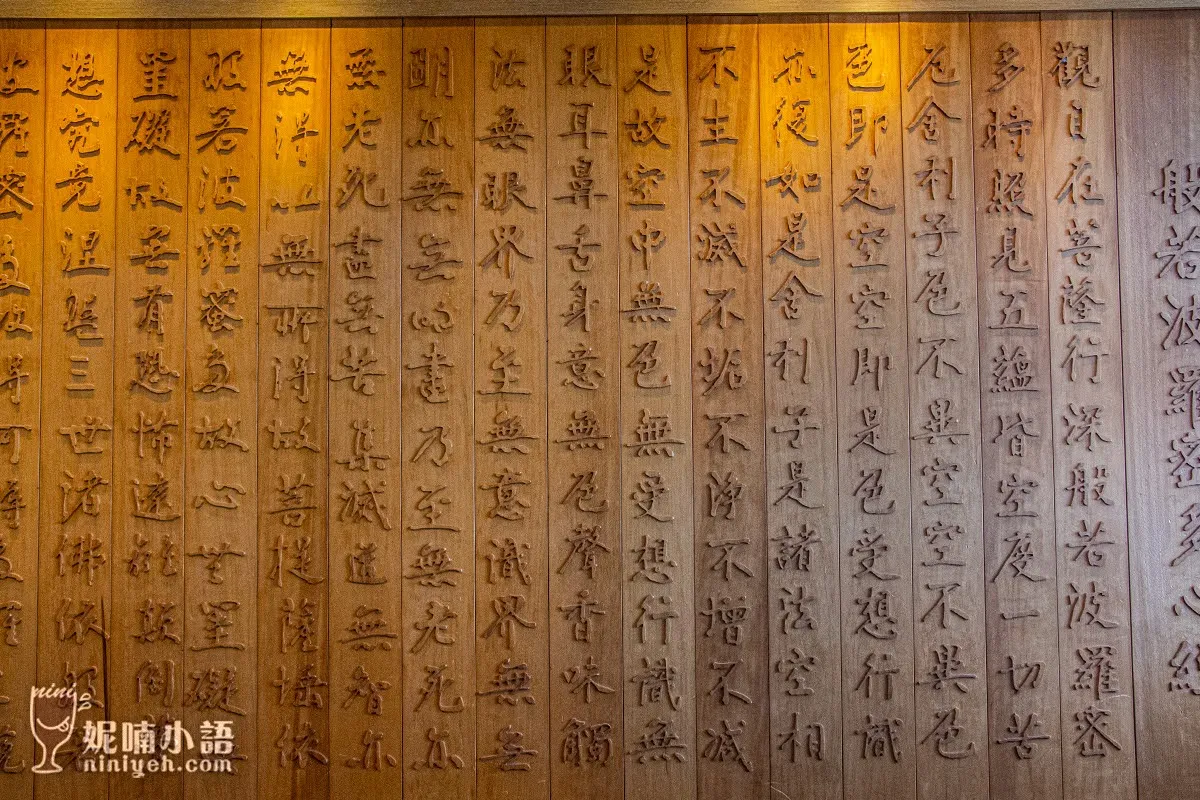 般若波羅密多心經
觀自在菩薩行深般若波羅密
多時照見五蘊皆空度一切苦
厄舍利子色不異空空不異色
色即是空空即是色受想行識
亦復如是舍利子是諸法空相
不生不滅不垢不淨不增不減
是故空中無色無受想行識無
眼耳鼻舌身意無色聲香味觸
法無眼界乃至無意識界無無
明亦無無明盡乃至無老死亦
無老死盡無苦集滅道無智亦
無得以無所得故菩提薩埵依
般若波羅蜜多故心無罣礙
罣礙故無有恐怖遠離顛倒
想究竟涅槃三世諸佛依般
波羅蜜多故得阿耨多羅三藐
nini
妮喃小語
niniyeh.com